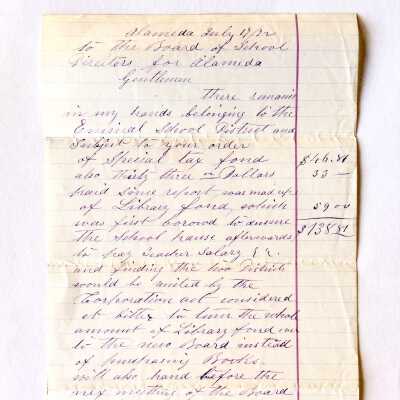 Alameda July 17/72
to the Board of School
Directors for Alameda
Gentlemen
there remains
in my hands belonging to the
Encinal School District and
Subject to your order
of Special tax fond $106.81
also thirty three Dollars 33 —
paid some report was made up
of Library fond which
was first borowd to insure
the School house afterwards $138 81
to pay teacher Salary
and finding the two Districts
would be united by the
Corporation act considered
it better to turn the whole
amount of Library fond over
to the new Board instead
of purchasing Books.
will also hand before the
nex meeting of the Board